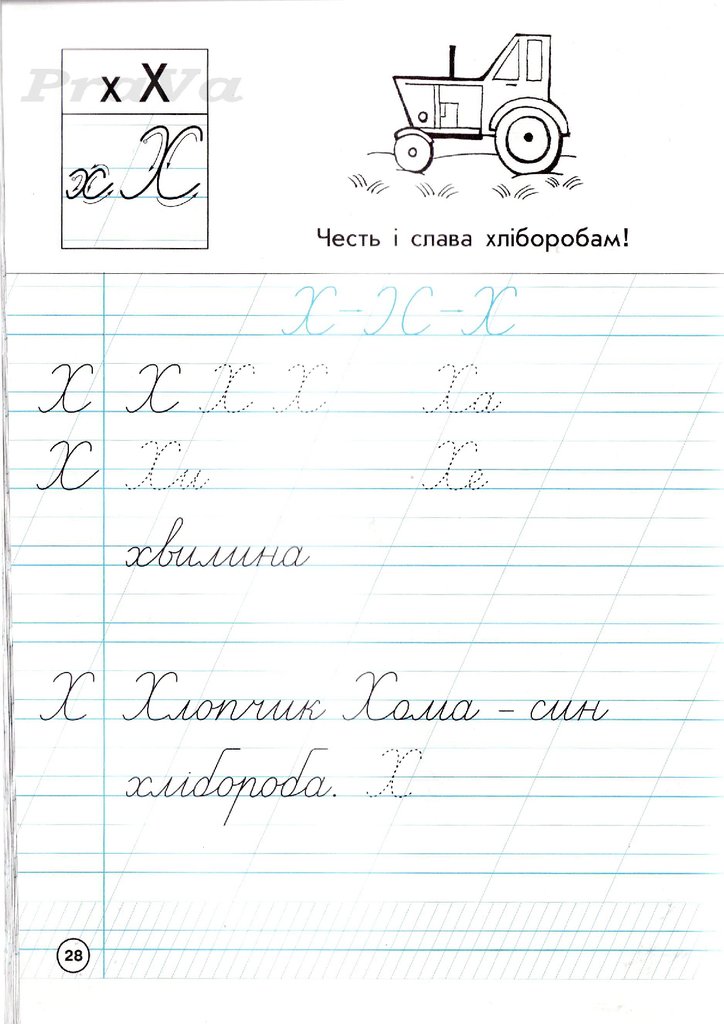 PraVa
х Х
х Х
Честь і слава хліборобам!
Х - ЭС - Х
Х Х Х Х Ха
Х Хи Хе
хвилина
Х Хлопчик Хома – син
хлібороба. Х
28